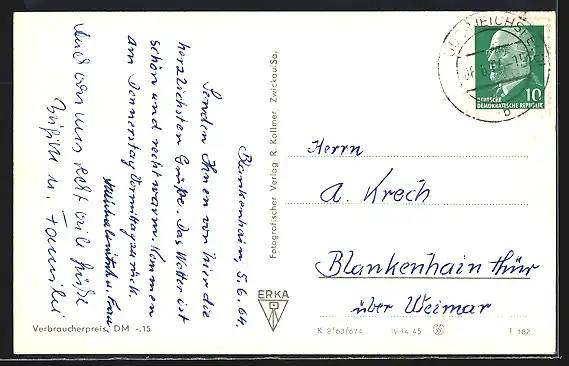 Blankenhain, 5.6.64.
Senden Ihnen von hier die
herzlichsten Grüße. Das Wetter ist
schön und recht warm. Kommen
am Donnerstag Vormittag zurück.
u. Frau.
Und von uns recht viele Grüße
u. Familie
Verbraucherpreis, DM -,15
Fotografischer Verlag R. Kallmer, Zwickau/Sa.
ERKA
DEUTSCHE
DEMOKRATISCHE REPUBLIK
10
b
Herrn
A. Krech
Blankenhain Thür
über Weimar
K 2/63/674 IV 14 45 F 182